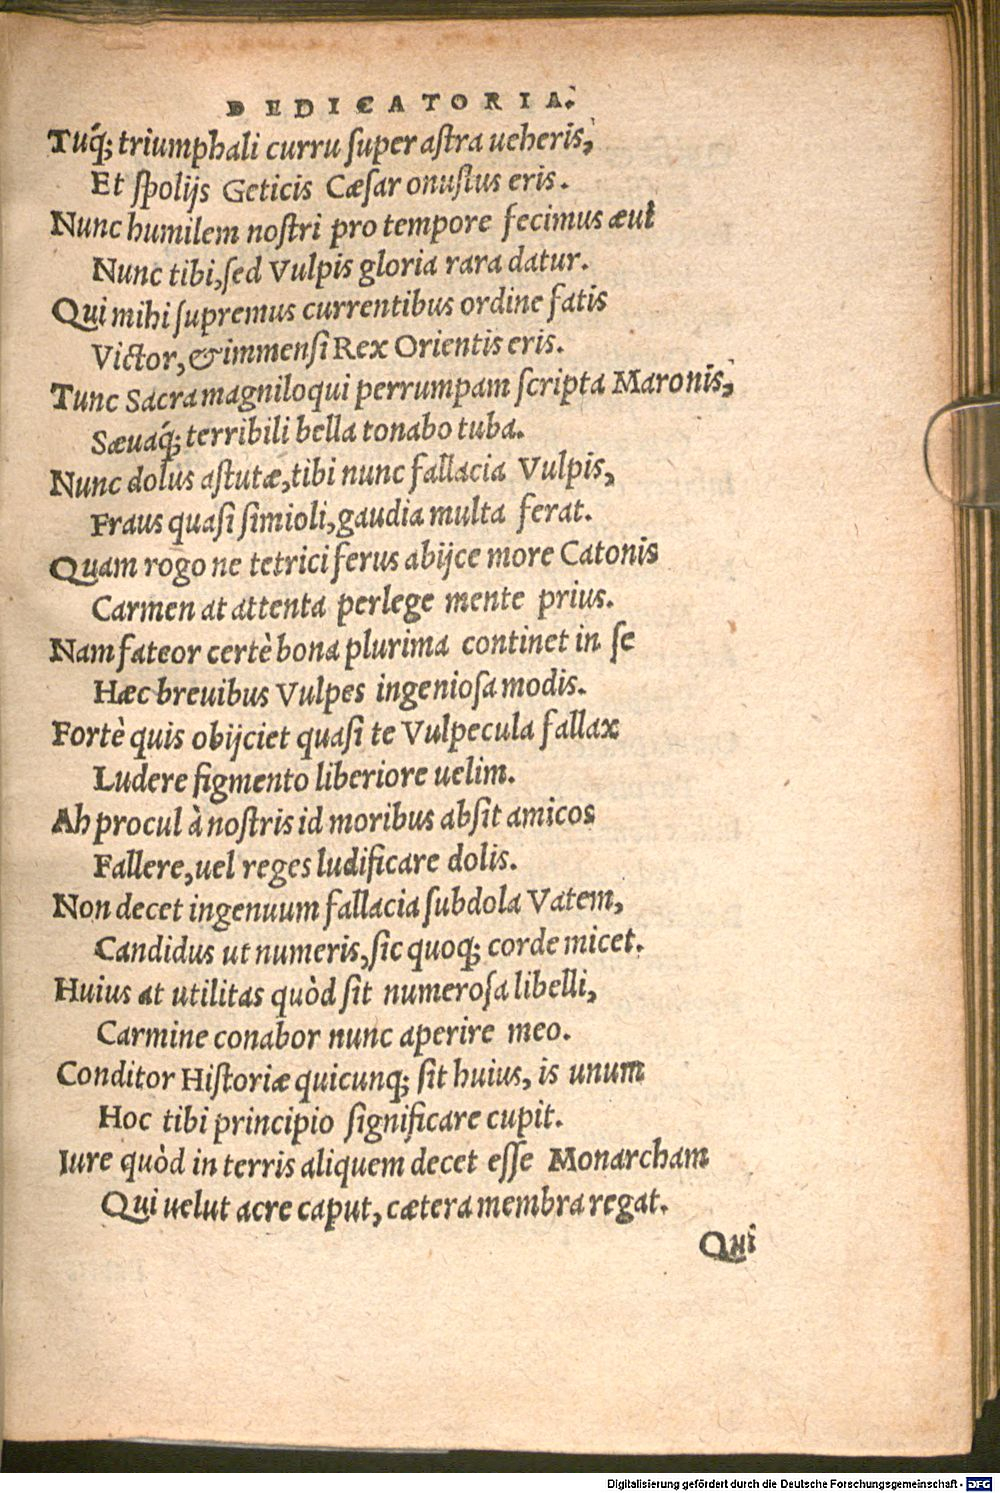 DEDICATORIA.
Tuq́; triumphali curru ſuper aſtra ueheris,
Et ſpolijs Geticis Cæſar onuſtus eris.
Nunc humilem noſtri pro tempore fecimus æui
Nunc tibi, ſed Vulpis gloria rara datur.
Qui mihi ſupremus currentibus ordine fatis
Victor, & immenſi Rex Orientis eris.
Tunc Sacra magniloqui perrumpam ſcripta Maronis,
Sæuaq́; terribili bella tonabo tuba.
Nunc dolus aſtutæ, tibi nunc fallacia Vulpis,
Fraus quaſi ſimioli, gaudia multa ferat.
Quam rogo ne tetrici ferus abijce more Catonis
Carmen at attenta perlege mente prius.
Nam fateor certè bona plurima continet in ſe
Hæc breuibus Vulpes ingenioſa modis.
Fortè quis obijciet quaſi te Vulpecula fallax
Ludere figmento liberiore uelim.
Ah procul à noſtris id moribus abſit amicos
Fallere, uel reges ludificare dolis.
Non decet ingenuum fallacia ſubdola Vatem,
Candidus ut numeris, ſic quoq; corde micet.
Huius at utilitas quòd ſit numeroſa libelli,
Carmine conabor nunc aperire meo.
Conditor Hiſtoriæ quicunq; ſit huius, is unum
Hoc tibi principio ſignificare cupit.
Iure quòd in terris aliquem decet eſſe Monarcham
Qui uelut acre caput, cætera membra regat.
Qui
Digitalisierung gefördert durch die Deutsche Forschungsgemeinschaft - DFG